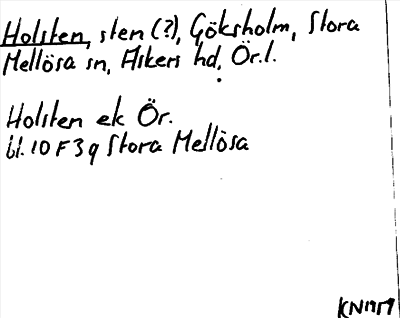 Holsten, sten (?), Göksholm, Stora
Mellösa sn, Askers hd, Ör.l.
Holsten ek Ör.
bl. 10 F 3 g Stora Mellösa
KN 1959